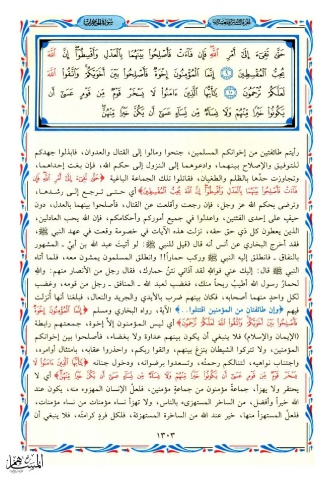 حَتَّىٰ تَفِىٓءَ إِلَىٰٓ أَمْرِ ٱللَّهِ فَإِن فَآءَتْ فَأَصْلِحُوا۟ بَيْنَهُمَا بِٱلْعَدْلِ وَأَقْسِطُوٓا۟ إِنَّ ٱللَّهَ
يُحِبُّ ٱلْمُقْسِطِينَ ٩ إِنَّمَا ٱلْمُؤْمِنُونَ إِخْوَةٌ فَأَصْلِحُوا۟ بَيْنَ أَخَوَيْكُمْ وَٱتَّقُوا۟ ٱللَّهَ
لَعَلَّكُمْ تُرْحَمُونَ ١٠ يَٰٓأَيُّهَا ٱلَّذِينَ ءَامَنُوا۟ لَا يَسْخَرْ قَوْمٌ مِّن قَوْمٍ عَسَىٰٓ أَن
يَكُونُوا۟ خَيْرًا مِّنْهُمْ وَلَا نِسَآءٌ مِّن نِّسَآءٍ عَسَىٰٓ أَن يَكُنَّ خَيْرًا مِّنْهُنَّ
رأيتم طائفتين من إخوانكم المؤمنين، جنحوا ومالوا إلى القتال والعدوان، فابذلوا جهدكم
للتوفيق والإصلاح بينهما، وادعوهما إلى النزول إلى حكم الله، فإن بغت إحداهما،
وتجاوزت حدّها بالظلم والطغيان، فقاتلوا تلك الجماعة الباغية ﴿حَتَّىٰ تَفِىٓءَ إِلَىٰٓ أَمْرِ ٱللَّهِ فَإِن
فَآءَتْ فَأَصْلِحُوا۟ بَيْنَهُمَا بِٱلْعَدْلِ وَأَقْسِطُوٓا۟ إِنَّ ٱللَّهَ يُحِبُّ ٱلْمُقْسِطِينَ﴾ أي حتى ترجع إلى رشدها،
وترضى بحكم الله عز وجل، فإن رجعت وأقلعت عن القتال، فأصلحوا بينهما بالعدل، دون
حيف على إحدى الفئتين، واعدلوا في جميع أموركم وأحكامكم، فإن الله يحب العادلين،
الذين يعطون كل ذي حق حقه، نزلت هذه الآيات في خصومة وقعت في عهد النبي ﷺ،
فقد أخرج البخاري عن أنس أنه قال (قيل للنبي ﷺ: لو أتيت عبد الله بن أبيّ - المشهور
بالنفاق - فانطلق إليه النبي ﷺ وركب حماراً!! وانطلق المسلمون يمشون معه، فلما أتاه
النبي ﷺ قال: إليك عني فوالله لقد آذاني نتنُ حمارك، فقال رجل من الأنصار منهم: والله
لحمارُ رسول الله أطيبُ ريحاً منك، فغضب لعبد الله - المنافق - رجل من قومه، وغضب
لكل واحدٍ منهما أصحابه، فكان بينهم ضرب بالأيدي والجريد والنعال، فبلغنا أنها أنزلت
فيهم ﴿وإن طائفتان من المؤمنين اقتتلوا..﴾ الآية، رواه البخاري ومسلم ﴿إِنَّمَا ٱلْمُؤْمِنُونَ إِخْوَةٌ
فَأَصْلِحُوا۟ بَيْنَ أَخَوَيْكُمْ وَٱتَّقُوا۟ ٱللَّهَ لَعَلَّكُمْ تُرْحَمُونَ﴾ أي ليس المؤمنون إلا إخوة، جمعتهم رابطة
(الإيمان والإسلام) فلا ينبغي أن يكون بينهم عداوة ولا بغضاء، فأصلحوا بين إخوانكم
المؤمنين، ولا تتركوا الشيطان ينزغ بينهم، واتقوا ربكم، واحذروا عقابه، بامتثال أوامره،
واجتناب نواهيه، لتنالكم رحمته، وتسعدوا برضوانه، ودخول جنانه ﴿يَٰٓأَيُّهَا ٱلَّذِينَ ءَامَنُوا۟ لَا
يَسْخَرْ قَوْمٌ مِّن قَوْمٍ عَسَىٰٓ أَن يَكُونُوا۟ خَيْرًا مِّنْهُمْ وَلَا نِسَآءٌ مِّن نِّسَآءٍ عَسَىٰٓ أَن يَكُنَّ خَيْرًا مِّنْهُنَّ﴾ أي لا
يحتقر ولا يهزأ، جماعةُ مؤمنون من جماعةٍ مؤمنين، فلعلَّ الإنسان المهزوء منه، يكون عند
الله خيراً وأفضل، من الساخر المستهزىء بالناس، ولا تهزأ نساء مؤمنات من نساء مؤمنات،
فلعلَّ المستهزأ منها، خير عند الله من الساخرة المستهزئة، فلكل فردٍ كرامتُه، فلا ينبغي أن
١٣٠٣